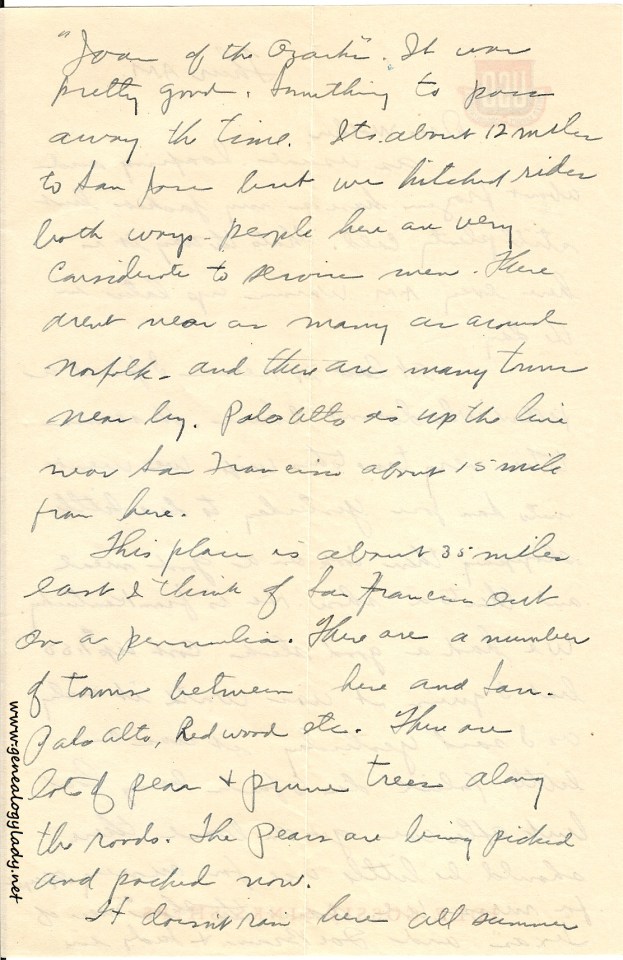 "Joan of the Ozarks". It was
pretty good. Something to pass
away the time. Its about 12 miles
to San Jose but we hitched rides
both ways - people here are very
considerate to service men. There
arent near as many as around
Norfolk - and there are many towns
near by. Palo Alto is up the line
near San Francisco about 15 mile
from here.
This place is about 35 miles
east I think of San Francisco out
on a pennulia. There are a number
of towns between here and San.
Palo Alto, Redwood etc. There are
lots of pear + prune trees along
the roads. The pears are being picked
and packed now.
It doesn't rain here all summer
www.genealogylady.net